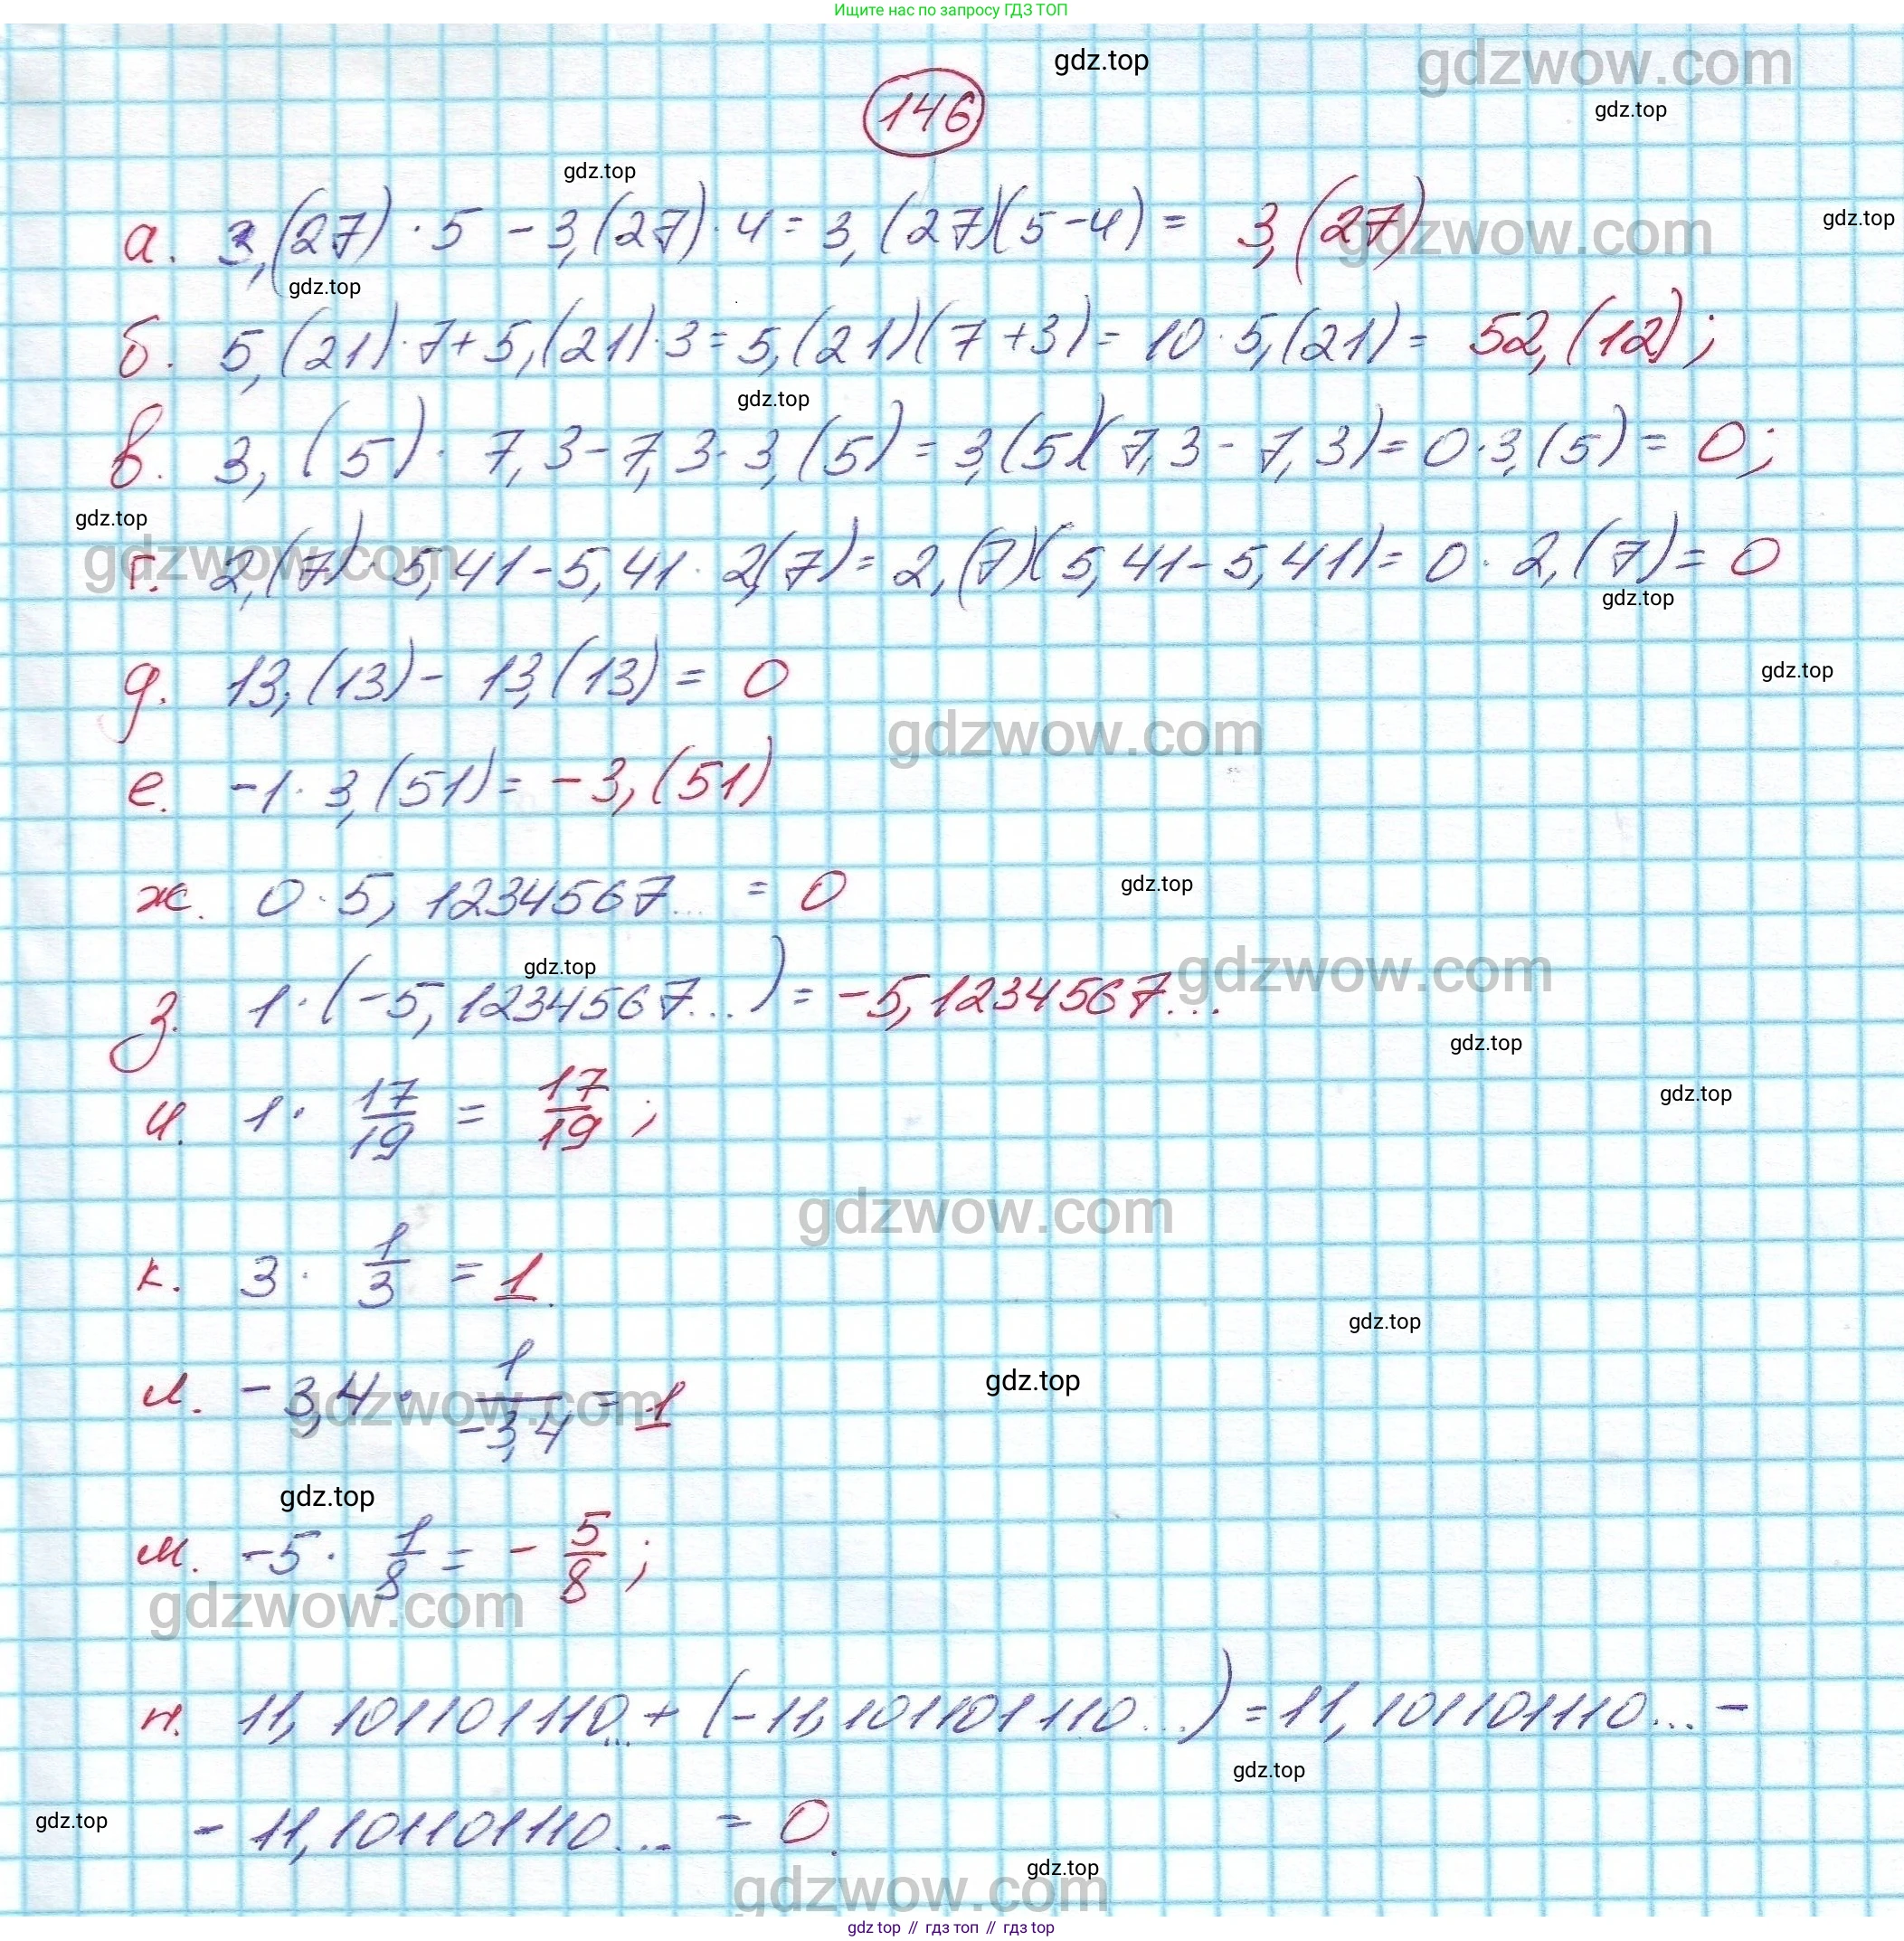 Ищите нас по запросу ГДЗ ТОП
gdz.top
gdzwow.com
146
gdz.top
gdz.top
а. 3,(27) · 5 - 3,(27) · 4 = 3,(27)(5-4) = 3,(27)
gdzwow.com
gdz.top
gdz.top
б. 5,(21) · 7 + 5,(21) · 3 = 5,(21)(7+3) = 10 · 5,(21) = 52,(12);
gdz.top
в. 3,(5) · 7,3 - 7,3 · 3,(5) = 3,(5)(7,3 - 7,3) = 0 · 3,(5) = 0;
gdz.top
gdzwow.com
г. 2,(7) · 5,41 - 5,41 · 2,(7) = 2,(7)(5,41 - 5,41) = 0 · 2,(7) = 0
gdz.top
д. 13,(13) - 13,(13) = 0
gdz.top
gdzwow.com
е. -1 · 3,(51) = -3,(51)
ж. 0 · 5,1234567... = 0
gdz.top
gdz.top
gdzwow.com
з. 1 · (-5,1234567...) = -5,1234567...
gdz.top
и. 1 · 17/19 = 17/19;
gdz.top
gdzwow.com
к. 3 · 1/3 = 1.
gdz.top
gdz.top
л. -3,4 · 1/-3,4 = 1
gdzwow.com
gdz.top
м. -5 · 1/8 = - 5/8;
gdzwow.com
н. 11,101101110... + (-11,101101110...) = 11,101101110... -
gdz.top
- 11,101101110... = 0.
gdz.top
gdz.top
gdzwow.com
gdz top // гдз топ // гдз top